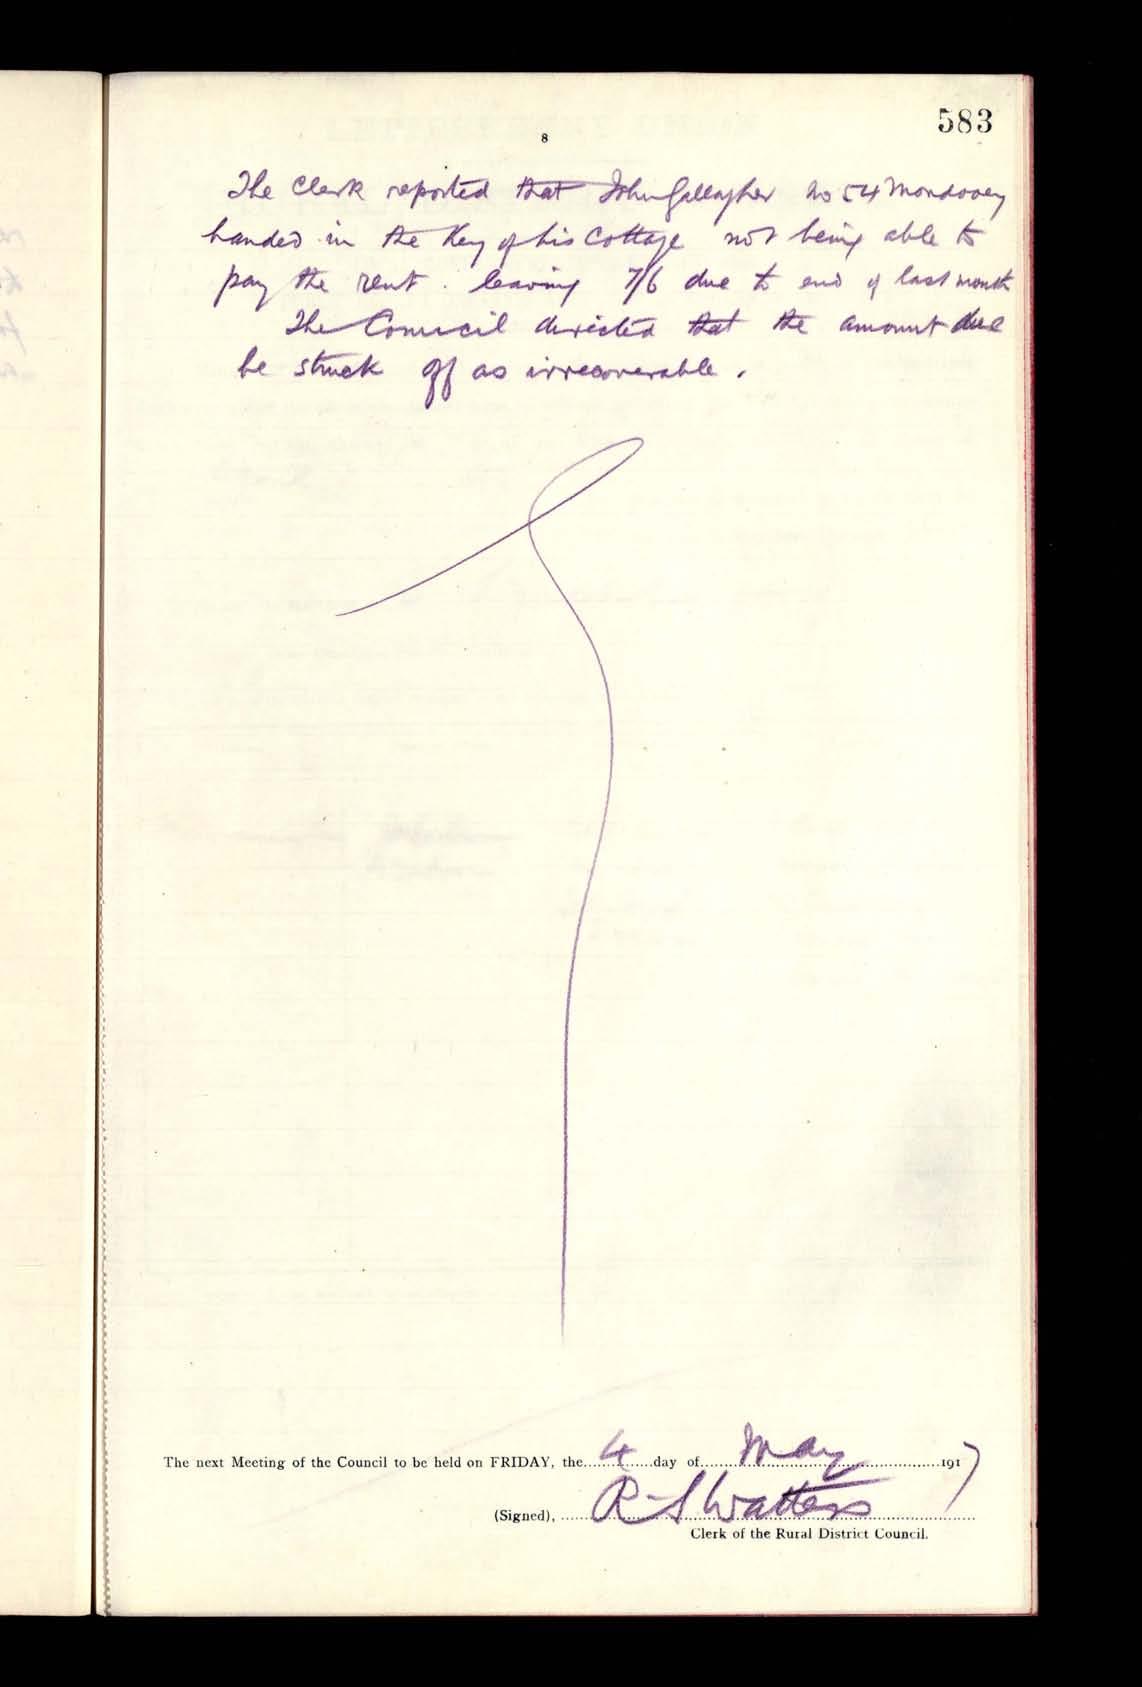 583
8
The Clerk reported that John Gallagher No 54 Mondooey
handed in the Key of his Cottage not being able to
pay the rent. leaving 7/6 due to end of last month
The Council directed that the amount due
be struck off as irrecoverable.
The next Meeting of the Council to be held on FRIDAY, the 4 day of May 1917
(Signed), R S Watters
Clerk of the Rural District Council.